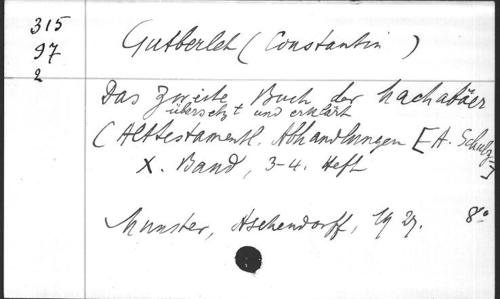 315
97
2
Gutberlet (Constantin)
Das zweite Buch der Machabäer
übersetzt und erklärt
(Alttestamentl. Abhandlungen [A. Schulz]
X. Band, 3-4. Heft
Munster, Aschendorff, 1927. 8°